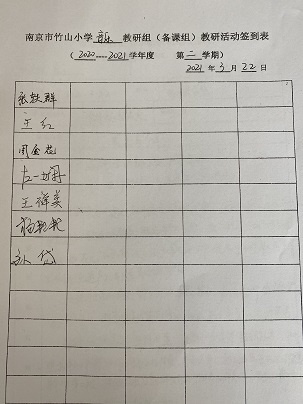 南京市竹山小学 音乐 教研组（备课组）教研活动签到表
（ 2020----2021 学年度 第 二 学期）
2021 年 3 月 22 日
张轶群
王红
周金花
左一娟
王祥美